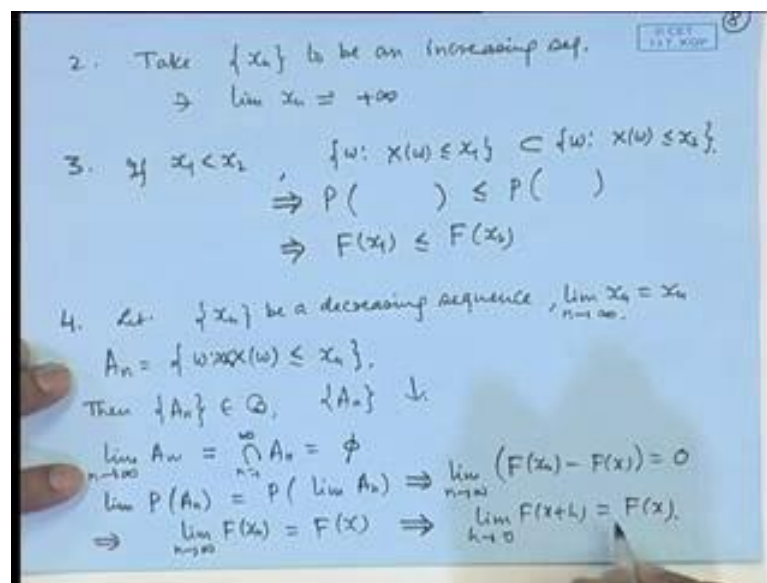 8
2. Take {xn} to be an increasing seq.
⇒ lim xn = +∞
3. If x1 < x2 , {w: X(w) ≤ x1} ⊂ {w: X(w) ≤ x2}.
⇒ P( ) ≤ P( )
⇒ F(x1) ≤ F(x2)
4. Let {xn} be a decreasing sequence, lim n→∞ xn = xn
An = { w: X(w) ≤ xn }.
Then {An} ∈ B, {An} ↓.
lim n→∞ An = ∩ An = φ
lim P(An) = P( lim An) ⇒ lim n→∞ (F(xn) - F(x)) = 0
⇒ lim n→∞ F(xn) = F(x) ⇒ lim h→0 F(x+h) = F(x).